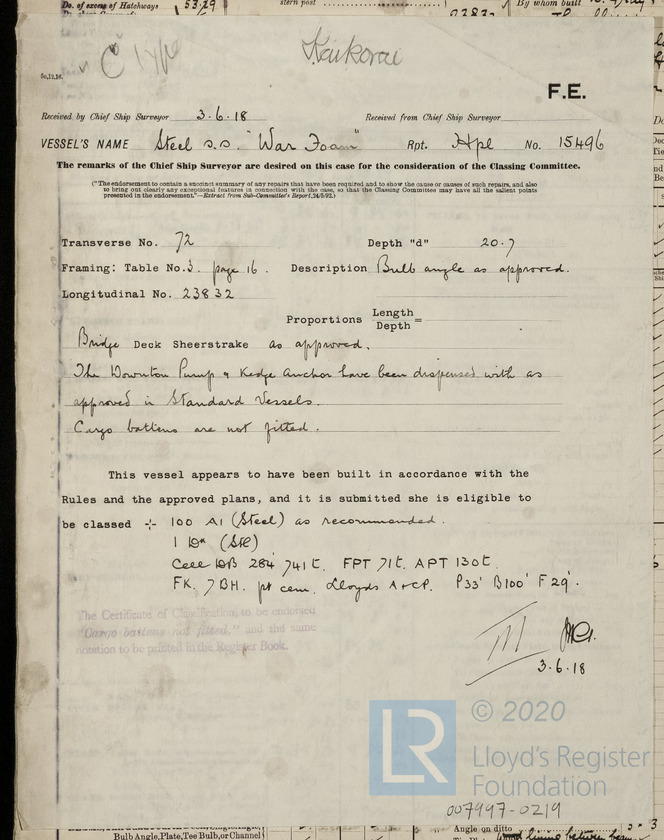 Do. of excess of Hatchways 53.29 stern post By whom built
Kaikorai
5c,12,16.
F.E.
Received by Chief Ship Surveyor 3.6.18 Received from Chief Ship Surveyor
VESSEL'S NAME Steel s.s. "War Foam" Rpt. Hpl No. 15496
The remarks of the Chief Ship Surveyor are desired on this case for the consideration of the Classing Committee.
("The endorsement to contain a succinct summary of any repairs that have been required and to show the cause or causes of such repairs, and also
to bring out clearly any exceptional features in connection with the case, so that the Classing Committee may have all the salient points
presented in the endorsement."—Extract from Sub-Committee's Report, 24/5/92.)
Transverse No. 72 Depth "d" 20.7
Framing: Table No. 3. page 16. Description Bulb angle as approved.
Longitudinal No. 23832
Proportions Length
Depth =
Bridge Deck Sheerstrake as approved.
The Downton Pump & Kedge Anchor have been dispensed with as
approved in Standard Vessels.
Cargo battens are not fitted.
This vessel appears to have been built in accordance with the
Rules and the approved plans, and it is submitted she is eligible to
be classed 100 A1 (Steel) as recommended.
Cell DB 284' 741t. FPT 71t. APT 130t.
FK. 7BH. pt cem. Lloyds A&CP. P33' B100' F29'.
The Certificate of Classification to be endorsed
"Cargo battens not fitted," and the same
notation to be printed in the Register Book.
3.6.18
© 2020
LR
Lloyd's Register
Foundation
007997-0219
Bulb Angle, Plate, Tee Bulb, or Channel Angle on ditto